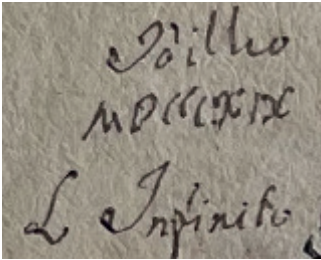 Idillio
MDCCCXIX
L Infinito